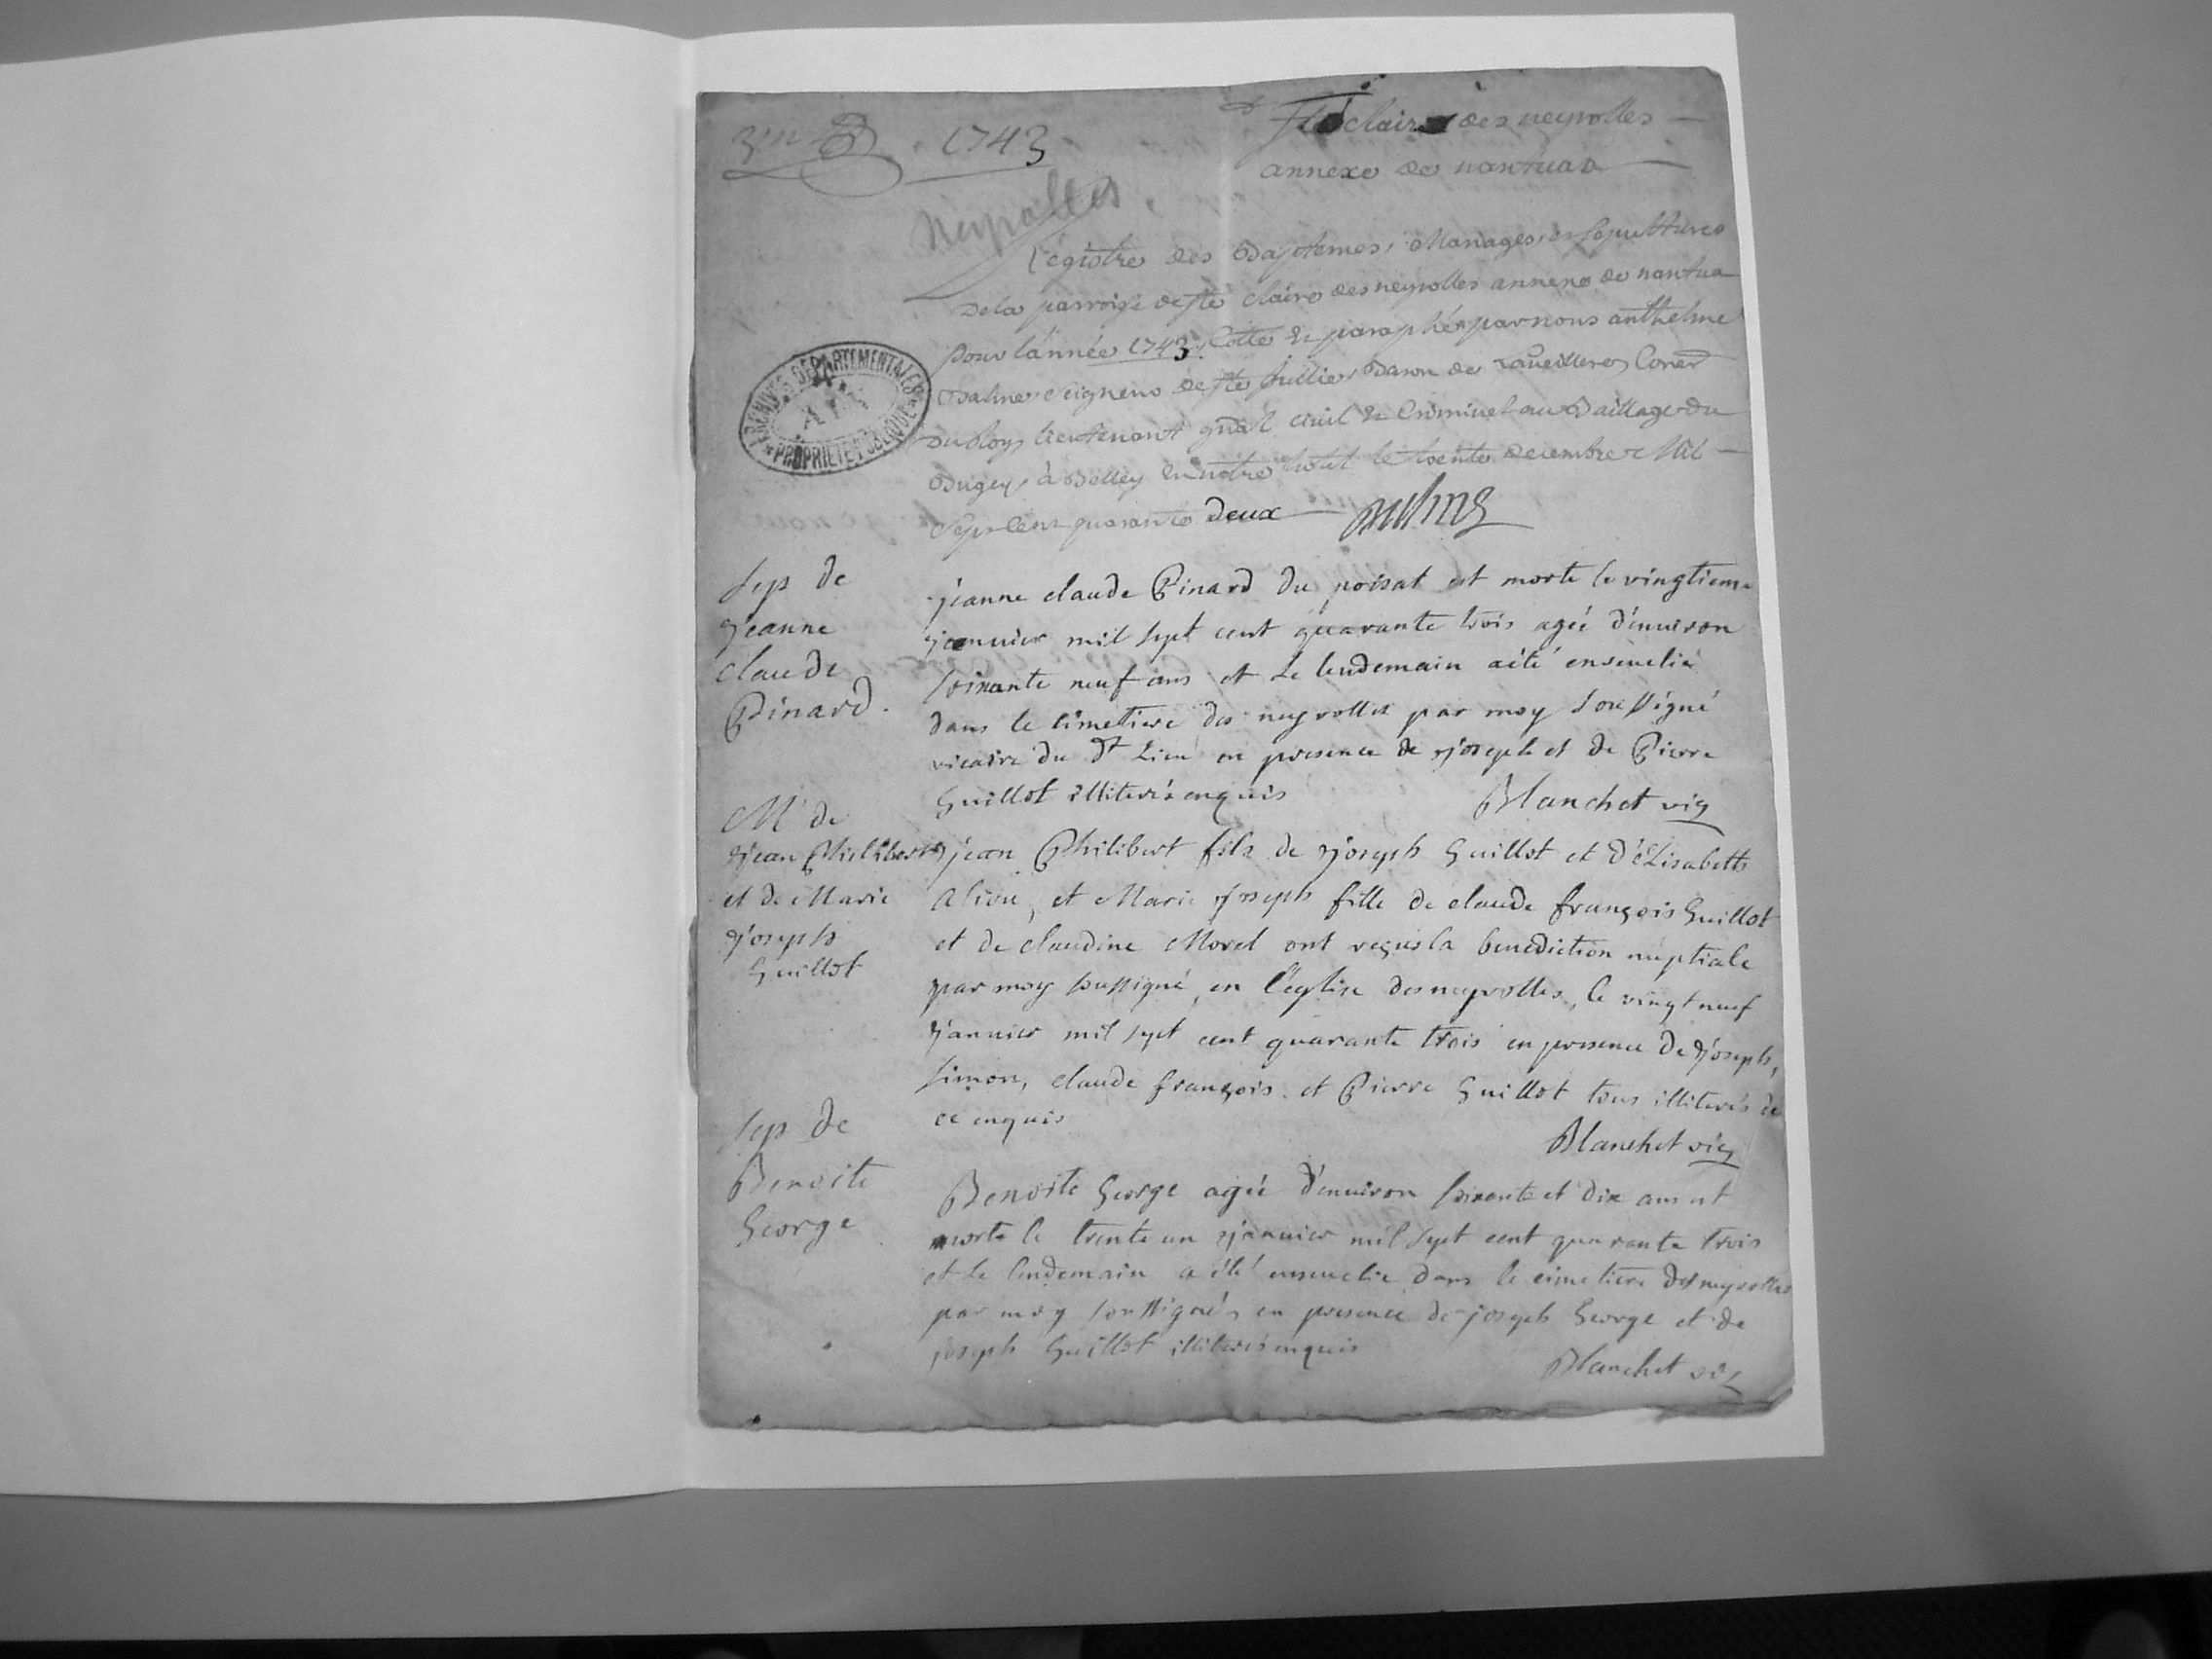 1743
Ste claire des neyrolles
annexe de nantua
Neyrolles
Registre des Baptemes, Mariages, et Sepultures
de la parroisse de ste claire des neyrolles annexe de nantua
pour l'année 1743. Cotté & paraphé par nous anthelme
Balme Seigneur de ste Jullie, Baron de Coner
du Roy, lieutenant gñal civil & Criminel au Bailliage du
Bugey, à Belley en notre hotel le trente decembre Mil
Sept Cent quarante deux
Balme
ARCHIVES DEPARTEMENTALES
AIN
PROPRIETE PUBLIQUE
Sep de
jeanne
claude
Pinard.
jeanne claude Pinard du poisat est morte le vingtieme
janvier mil sept cent quarante trois agée d'environ
soixante neuf ans et le lendemain a été ensevelie
dans le cimetiere des neyrolles par moy soussigné
vicaire du dt Lieu en presence de joseph et de Pierre
Guillot illiterés enquis
Blanchet vic
M de
jean Philibert
et de Marie
joseph
Guillot
jean Philibert fils de joseph Guillot et d'Elisabeth
et Marie joseph fille de claude françois Guillot
et de claudine Morel ont reçus la benediction nuptiale
par moy soussigné, en l'église des neyrolles, le vingt neuf
janvier mil sept cent quarante trois en presence de joseph,
simon, claude françois et Pierre Guillot tous illiterés de
ce enquis
Blanchet vic
Sep de
Benoite
George
Benoite George agée d'environ soixante et dix ans est
morte le trente un janvier mil sept cent quarante trois
et le lendemain a été ensevelie dans le cimetiere des neyrolles
par moy soussigné, en presence de joseph George et de
joseph Guillot illiterés enquis
Blanchet vic